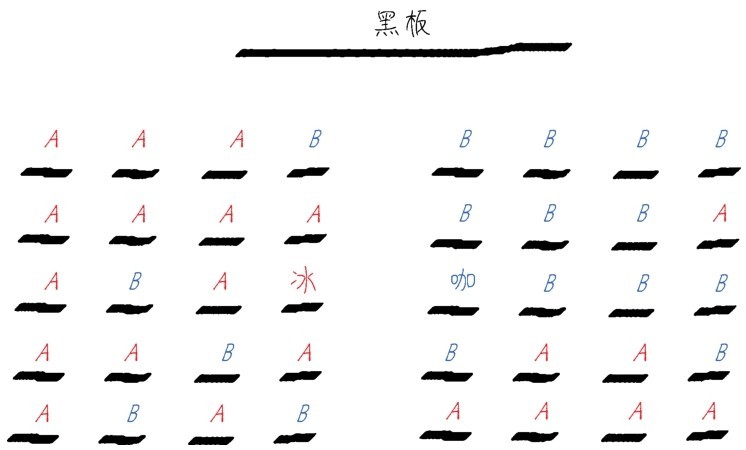 黑板
A A A B B B B B
A A A A B B B A
A B A 冰 咖 B B B
A A B A B A A B
A B A B A A A A